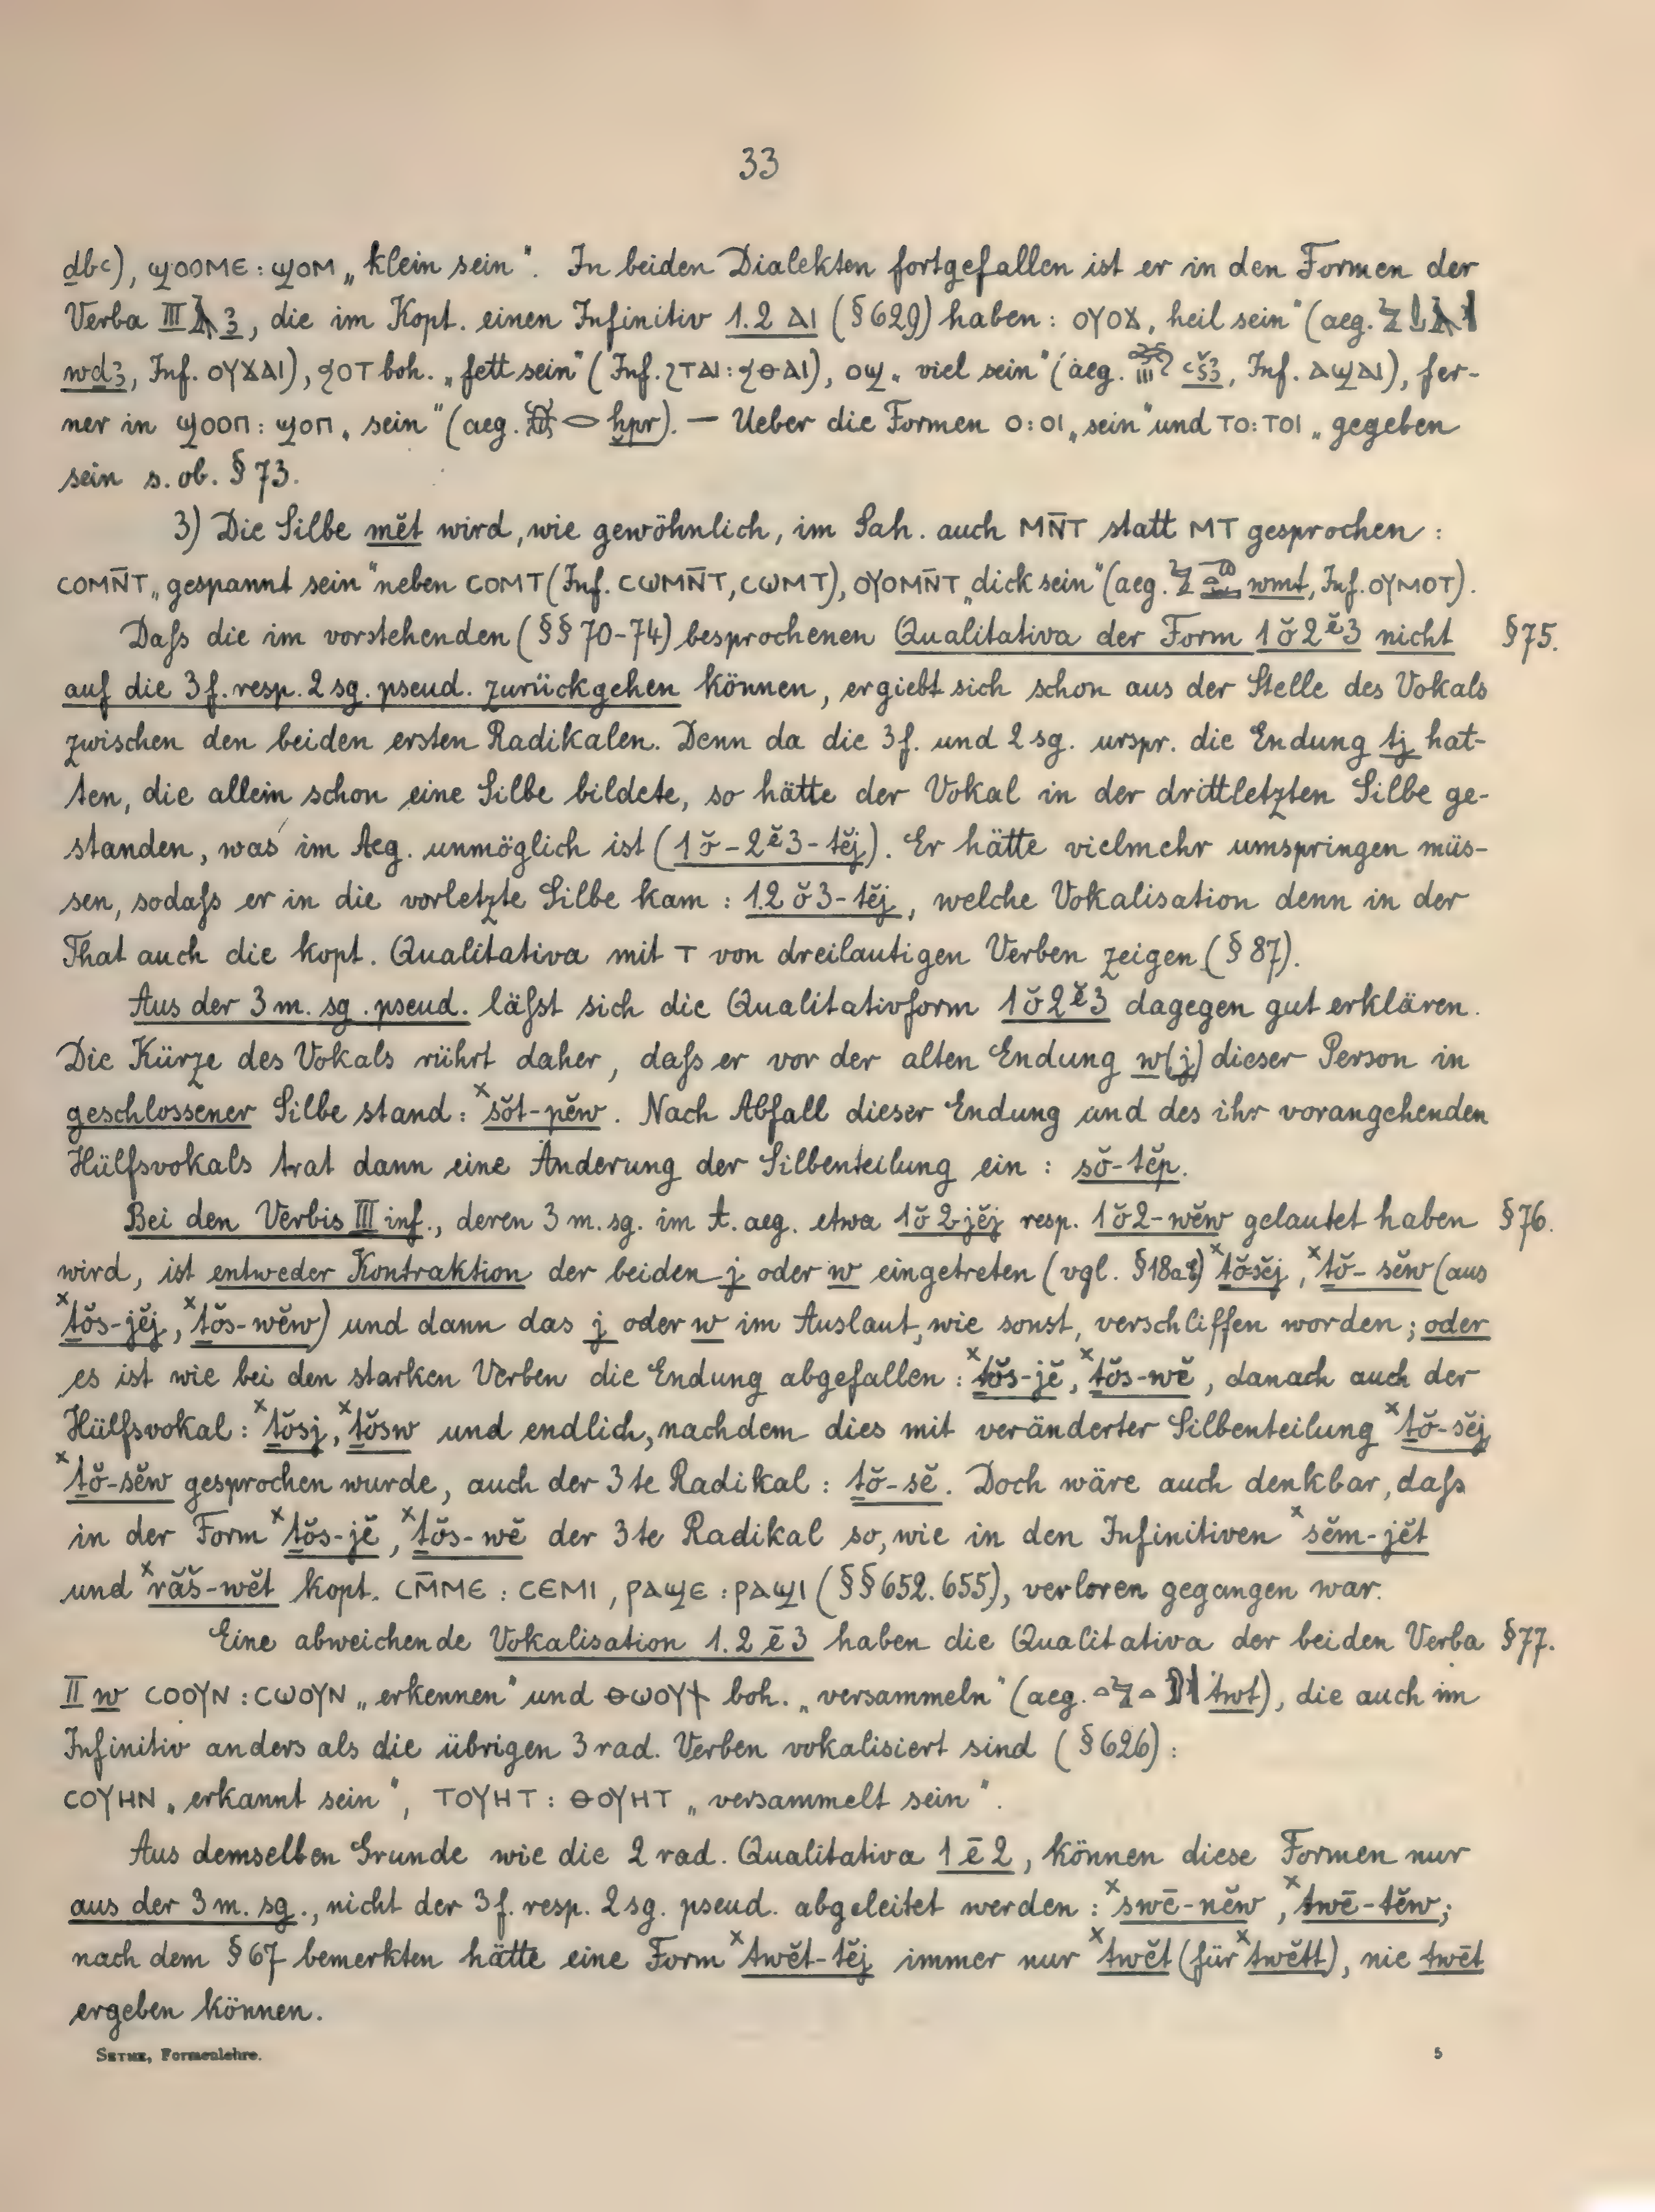 33
dbꜥ), ϣⲟⲟⲙⲉ : ϣⲟⲙ „klein sein“. In beiden Dialekten fortgefallen ist er in den Formen der
Verba III 𓄿 ꜣ, die im Kopt. einen Infinitiv 1.2 ⲁⲓ (§ 629) haben: ⲟⲩⲟϫ, heil sein“ (aeg.
wdꜣ, Inf. ⲟⲩϫⲁⲓ), ϧⲟⲧ boh. „fett sein“ (Inf. ϩⲧⲁⲓ : ϧⲑⲁⲓ), ⲟϣ „viel sein“ (aeg. ꜥšꜣ, Inf. ⲁϣⲁⲓ), fer-
ner in ϣⲟⲟⲡ : ϣⲟⲡ „sein“ (aeg. 𓆣 𓂋 ḫpr). — Ueber die Formen ⲟ : ⲟⲓ „sein“ und ⲧⲟ : ⲧⲟⲓ „gegeben
sein s. ob. § 73.
3) Die Silbe mĕt wird, wie gewöhnlich, im Sah. auch ⲙⲛ̄ⲧ statt ⲙⲧ gesprochen :
ⲥⲟⲙⲛ̄ⲧ „gespannt sein“ neben ⲥⲟⲙⲧ (Inf. ⲥⲱⲙⲛ̄ⲧ, ⲥⲱⲙⲧ), ⲟⲩⲟⲙⲛ̄ⲧ „dick sein“ (aeg. wmt, Inf. ⲟⲩⲙⲟⲧ).
Daſs die im vorstehenden (§§ 70-74) besprochenen Qualitativa der Form 1ŏ2ĕ3 nicht § 75.
auf die 3 f. resp. 2 sg. pseud. zurückgehen können, ergiebt sich schon aus der Stelle des Vokals
zwischen den beiden ersten Radikalen. Denn da die 3 f. und 2 sg. urspr. die Endung tj hat-
ten, die allein schon eine Silbe bildete, so hätte der Vokal in der drittletzten Silbe ge-
standen, was im Aeg. unmöglich ist (1ŏ-2ĕ3-tĕj). Er hätte vielmehr umspringen müs-
sen, sodaſs er in die vorletzte Silbe kam : 1.2ŏ3-tĕj, welche Vokalisation denn in der
That auch die kopt. Qualitativa mit ⲧ von dreilautigen Verben zeigen (§ 87).
Aus der 3 m. sg. pseud. läſst sich die Qualitativform 1ŏ2ĕ3 dagegen gut erklären.
Die Kürze des Vokals rührt daher, daſs er vor der alten Endung w(j) dieser Person in
geschlossener Silbe stand : ˣsŏt-pĕw. Nach Abfall dieser Endung und des ihr vorangehenden
Hülfsvokals trat dann eine Änderung der Silbenteilung ein : sŏ-tĕp.
Bei den Verbis III inf., deren 3 m. sg. im t. aeg. etwa 1ŏ2jĕj resp. 1ŏ2-wĕw gelautet haben § 76.
wird, ist entweder Kontraktion der beiden j oder w eingetreten (vgl. § 18) ˣṯŏsĕj, ˣṯŏ-sĕw (aus
ˣṯŏs-jĕj, ˣṯŏs-wĕw) und dann das j oder w im Auslaut, wie sonst, verschliffen worden; oder
es ist wie bei den starken Verben die Endung abgefallen : ˣṯŏs-jĕ, ˣṯŏs-wĕ, danach auch der
Hülfsvokal : ˣṯŏsj, ˣṯŏsw und endlich, nachdem dies mit veränderter Silbenteilung ˣṯŏ-sĕj
ˣṯŏ-sĕw gesprochen wurde, auch der 3te Radikal : ṯŏ-sĕ. Doch wäre auch denkbar, daſs
in der Form ˣṯŏs-jĕ, ˣṯŏs-wĕ der 3te Radikal so, wie in den Infinitiven ˣsĕm-jĕt
und ˣrăš-wĕt kopt. ⲥⲙ̄ⲙⲉ : ⲥⲉⲙⲓ, ⲣⲁϣⲉ : ⲣⲁϣⲓ (§§ 652. 655), verloren gegangen war.
Eine abweichende Vokalisation 1.2ē3 haben die Qualitativa der beiden Verba § 77.
II w ⲥⲟⲟⲩⲛ : ⲥⲱⲟⲩⲛ „erkennen“ und ⲑⲱⲟⲩϯ boh. „versammeln“ (aeg. twt), die auch im
Infinitiv anders als die übrigen 3 rad. Verben vokalisiert sind (§ 626) :
ⲥⲟⲩⲏⲛ „erkannt sein“, ⲧⲟⲩⲏⲧ : ⲑⲟⲩⲏⲧ „versammelt sein“.
Aus demselben Grunde wie die 2 rad. Qualitativa 1ē2, können diese Formen nur
aus der 3 m. sg., nicht der 3 f. resp. 2 sg. pseud. abgeleitet werden : ˣswē-nĕw, ˣtwē-tĕw;
nach dem § 67 bemerkten hätte eine Form ˣtwĕt-tĕj immer nur ˣtwĕt (für ˣtwĕtt), nie twēt
ergeben können.
SETHE, Formenlehre. 5